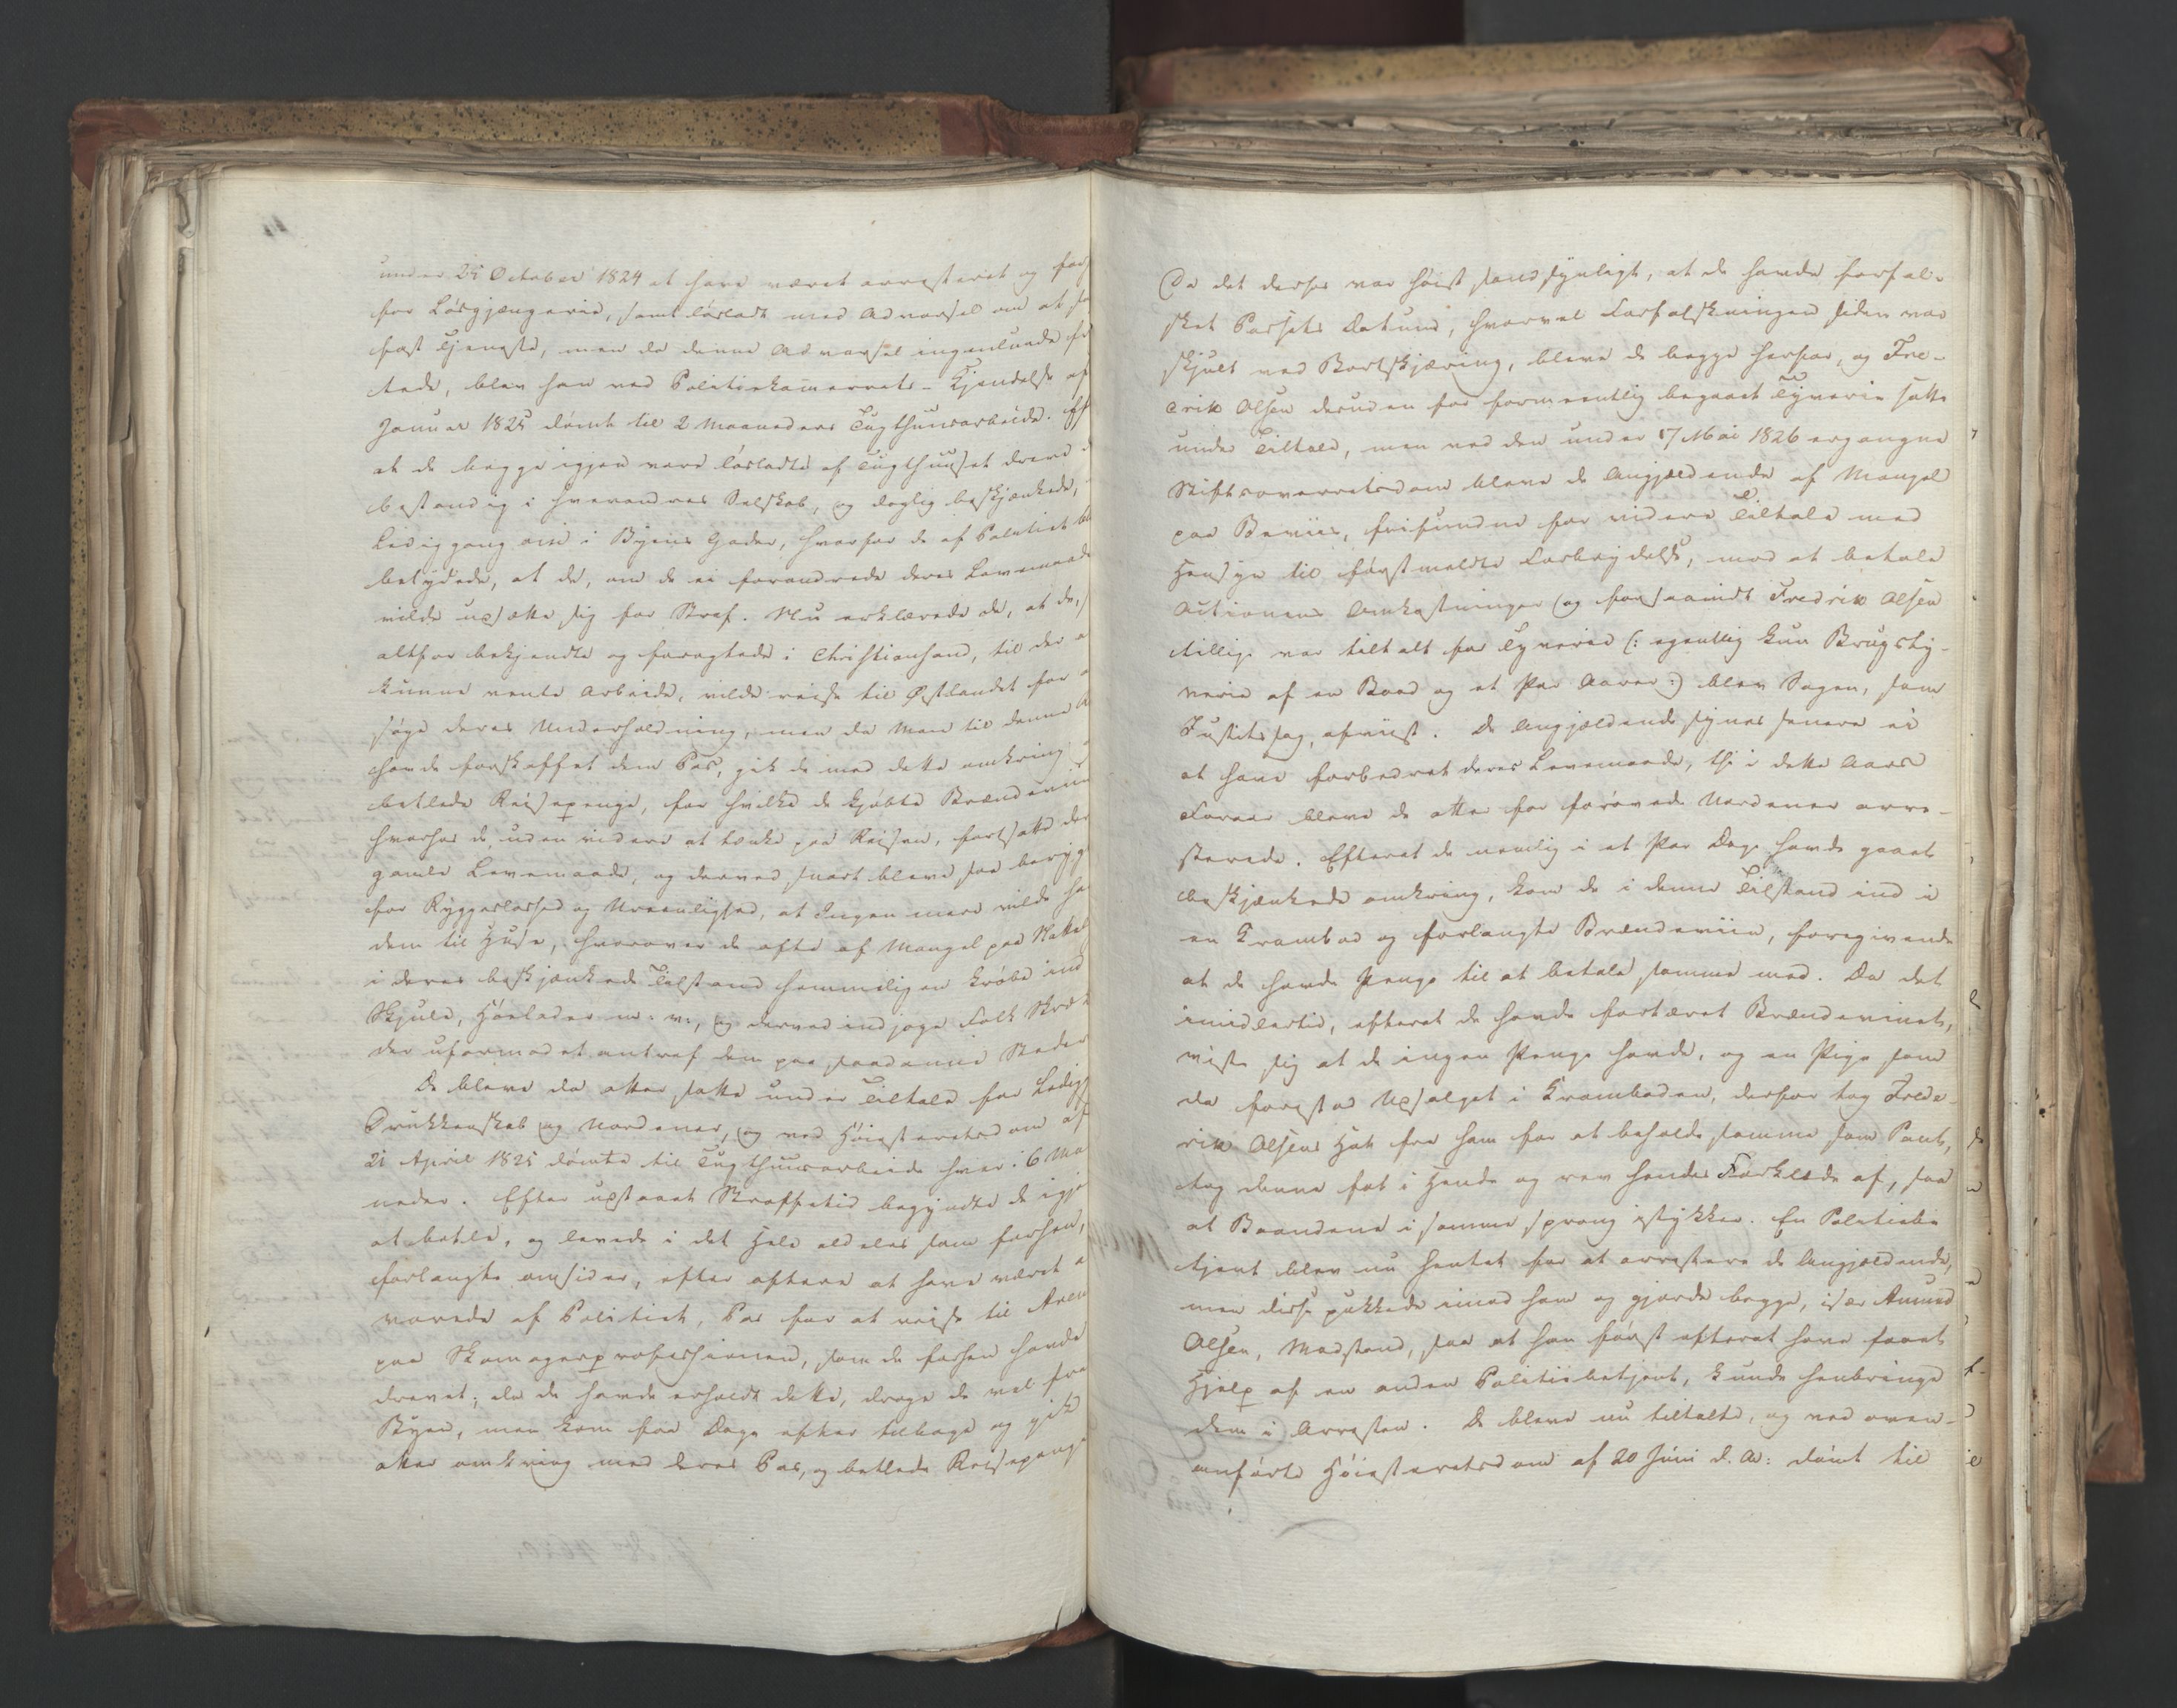 under 25 October 1824 at have været arresteret og
for Løsgjængerie, samt løsladt med Advarsel om at
fast Tjeneste, men da denne Advarsel ingenlunde
tede, blev han ved Politiekamerets-Kjendelse af
Januar 1825 dømt til 2 Maaneders Tugthuusarbeide.
at de begge igjen vare løsladte af Tugthuuset dreve
bestandig i hverandres Selskab, og daglig beskjænkede,
Lediggang om i Byens Gader, hvorfor de af Politiet
betydede, at de, om de ei forandrede deres Levemaade
vilde udsætte sig for Straf. Nu erklærede de, at de,
altfor bekjendte og foragtede i Christiansand, til der
kunne vente Arbeide, vilde reise til Østlandet for
søge deres Underholdning, men da Man til denne
havde forskaffet dem Pas, gik de med dette omkring
betlede Reisepenge, for hvilke de kjøbte Brændeviin
hvorhos de uden videre at tænke paa Reisen, fortsatte
gamle Levemaade, og derved snart bleve saa
for Ryggesløshed og Ureenlighed, at Ingen mere vilde
dem til Huse, hvorover de ofte af Mangel paa
i deres beskjænkede Tilstand hemmeligen krøbe ind
Skjule, Høelader m: v:, og derved indjoge Folk Skræk
der uformodet antraf dem paa saadanne Steder
De bleve da atter satte under Tiltale for
Drukkenskab og Uordener, og ved Høiesteretsdom af
21 April 1825 dømte til Tugthuusarbeide hver i 6
neder. Efter udstaaet Straffetid begyndte de
at betle, og levede i det Hele aldeles som forhen,
forlangte omsider, efter oftere at have været
varede af Politiet, Pas for at reise til
paa Skomagerprofessionen, som de forhen havde
drevet; da de havde erholdt dette, droge de vel fra
Byen, men kom faa Dage efter tilbage og gik
atter omkring med deres Pas, og betlede Reisepenge
Da det derhos var høist sandsynligt, at de havde forfal-
sket Passets Datum, hvorvel Forfalskningen siden var
skjult ved Bortskjæring, bleve de begge herfor, og Fre-
derik Olsen desuden for formeentlig begaaet Tyverie satte
under Tiltale, men ved den under 17 Mai 1826 ergangne
Stiftsoverretsdom bleve de Angjældende af Mangel
paa Beviis, frifundne for videre Tiltale med
Hensyn til førstmeldte Forbrydelse, mod at betale
Actionens Omkostninger og forsaavidt Fredrik Olsen
tillige var tiltalt for Tyverie (: egentlig kun Brugsty-
verie af en Baad og et Par Aarer :) blev Sagen, som
Justitssag, afviist. De Angjældende synes senere ei
at have forbedret deres Levemaade, thi i dette Aars
Foraar bleve de atter for forøvede Uordener arre-
sterede. Efterat de nemlig i et Par Dage havde gaaet
beskjænkede omkring, kom de i denne Tilstand ind i
en Krambod og forlangte Brændeviin, foregivende
at de havde Penge til at betale samme med. Da det
imidlertid, efterat de havde fortæret Brændevinet,
viste sig at de ingen Penge havde, og en Pige som
da forestod Udsalget i Kramboden, derfor tog Frede-
rik Olsens Hat fra ham for at beholde samme som Pant,
tog denne fat i Hende og rev hendes Forklæde af, saa
at Baandene i samme sprang istykker. En Politiebe
tjent blev nu hentet for at arrestere de Angjældende,
men disse pukkede imod ham og gjorde begge, især Amund
Olsen, Modstand, saa at han først efterat have faaet
Hjelp af en anden Politiebetjent, kunde henbringe
dem i Arresten. De bleve nu tiltalte, og ved oven-
anførte Høiesteretsdom af 20 Juni d. A: dømt til